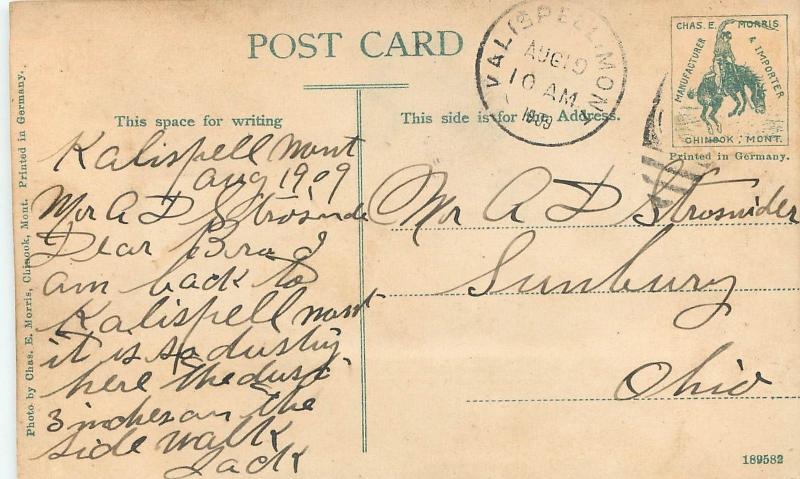 POST CARD
KALISPELL, MONT.
AUG 19
10 AM
1909
CHAS. E. MORRIS
MANUFACTURER & IMPORTER
CHINOOK, MONT.
Printed in Germany.
This space for writing
This side is for the Address.
Kalispell Mont
Aug 19, 09
Mr A D Strosnide
Dear Bro I
am back to
Kalispell Mont
it is so dusty
here the dust
3 inches on the
side walk
Jack
Mr A D Strosnider
Sunbury
Ohio
Photo by Chas. E. Morris, Chinook, Mont. Printed in Germany.
189582